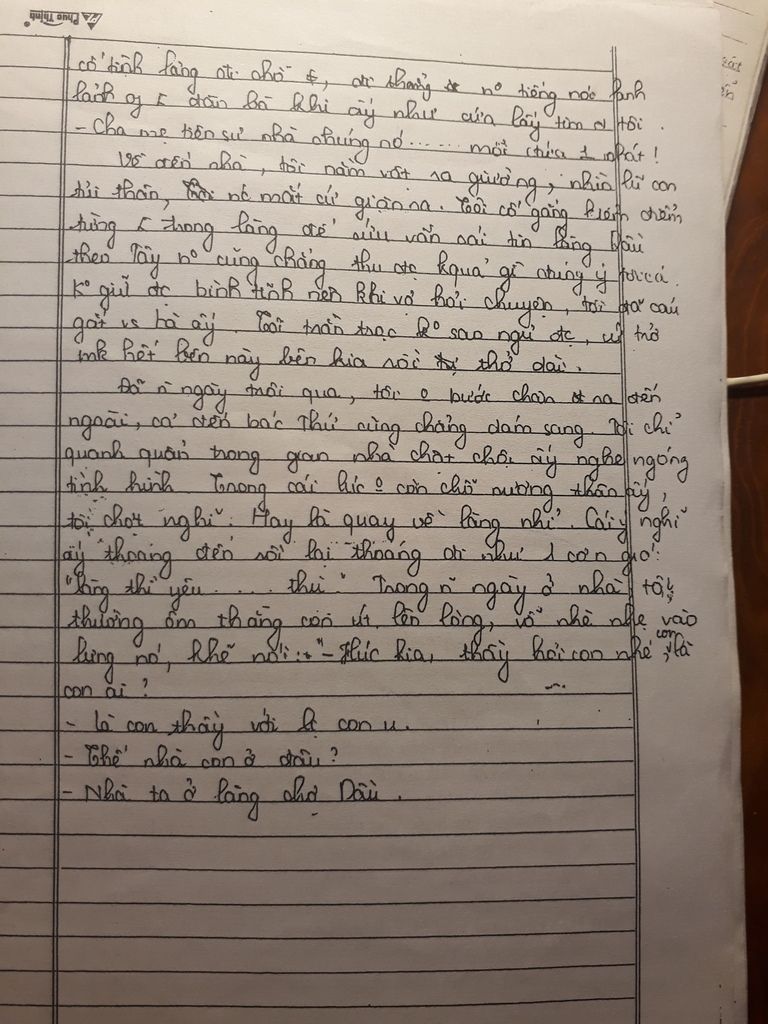 Phúc Thịnh
cố tình lảng đi chỗ #, đi thẳng nº tiếng nóc lanh
lảnh of 5 đàn bà khi ấy như cứa lấy tim # tôi.
- Cha mẹ tiên sư nhà chúng nó...... mỗi đứa 1 nhát!
Về đến nhà, tôi nằm vật ra giường, nhìn lũ con
tủi thân, nc mắt cứ giàn ra. Tôi cố gắng kiểm điểm
từng 5 trong làng để suy vấn cái tin làng Dầu
theo Tây nº cũng chẳng thu đc kquả gì đúng ý tôi cả.
Kº giữ đc bình tĩnh nên khi vợ hỏi chuyện, tôi đã cáu
gắt vs bà ấy. Tôi trằn trọc kº sao ngủ đc, cứ trở
mk hết bên này bên kia rồi thở dài.
Đã n ngày trôi qua, tôi o bước chân ra đến
ngoài, cả đến bác Thứ cũng chẳng dám sang. Tôi chỉ
quanh quẩn trong gian nhà chật chội ấy nghe ngóng
tình hình. Trong cái lúc o còn chỗ nương thân ấy,
tôi chợt nghĩ: Hay là quay về làng nhỉ. Cái ý nghĩ
ấy thoáng đến rồi lại thoáng đi như 1 cơn gió:
"làng thì yêu...... thù." Trong n ngày ở nhà tôi,
thường ôm thằng con út lên lòng, vỗ nhè nhẹ vào
lưng nó, khẽ nói: "- Húc kia, thầy hỏi con nhé, con là
con ai?
- là con thầy với lị con u.
- Thế nhà con ở đâu?
- Nhà ta ở làng chợ Dầu.